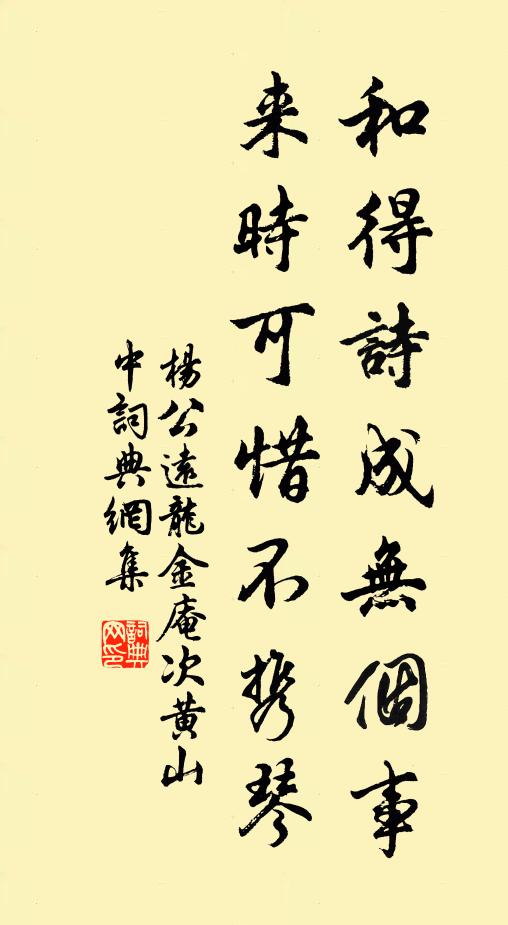 和得詩成無個事
来時可惜不携琴
楊公遠龍金庵次黄山
中詞典網集
詞典
网印